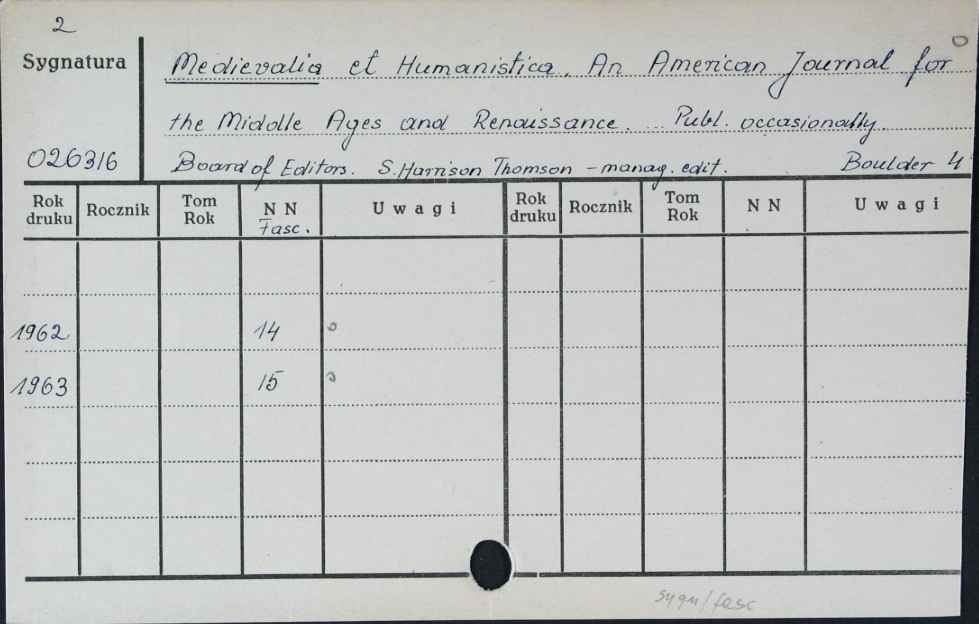 2
Sygnatura
Medievalia et Humanistica. An American Journal for
the Middle Ages and Renaissance. Publ. occasionally.
026316
Board of Editors. S. Harrison Thomson - manag. edit. Boulder 4
Rok druku Rocznik Tom Rok N N Fasc. Uwagi Rok druku Rocznik Tom Rok N N Uwagi
1962 14 o
1963 15 o
sygn/fasc